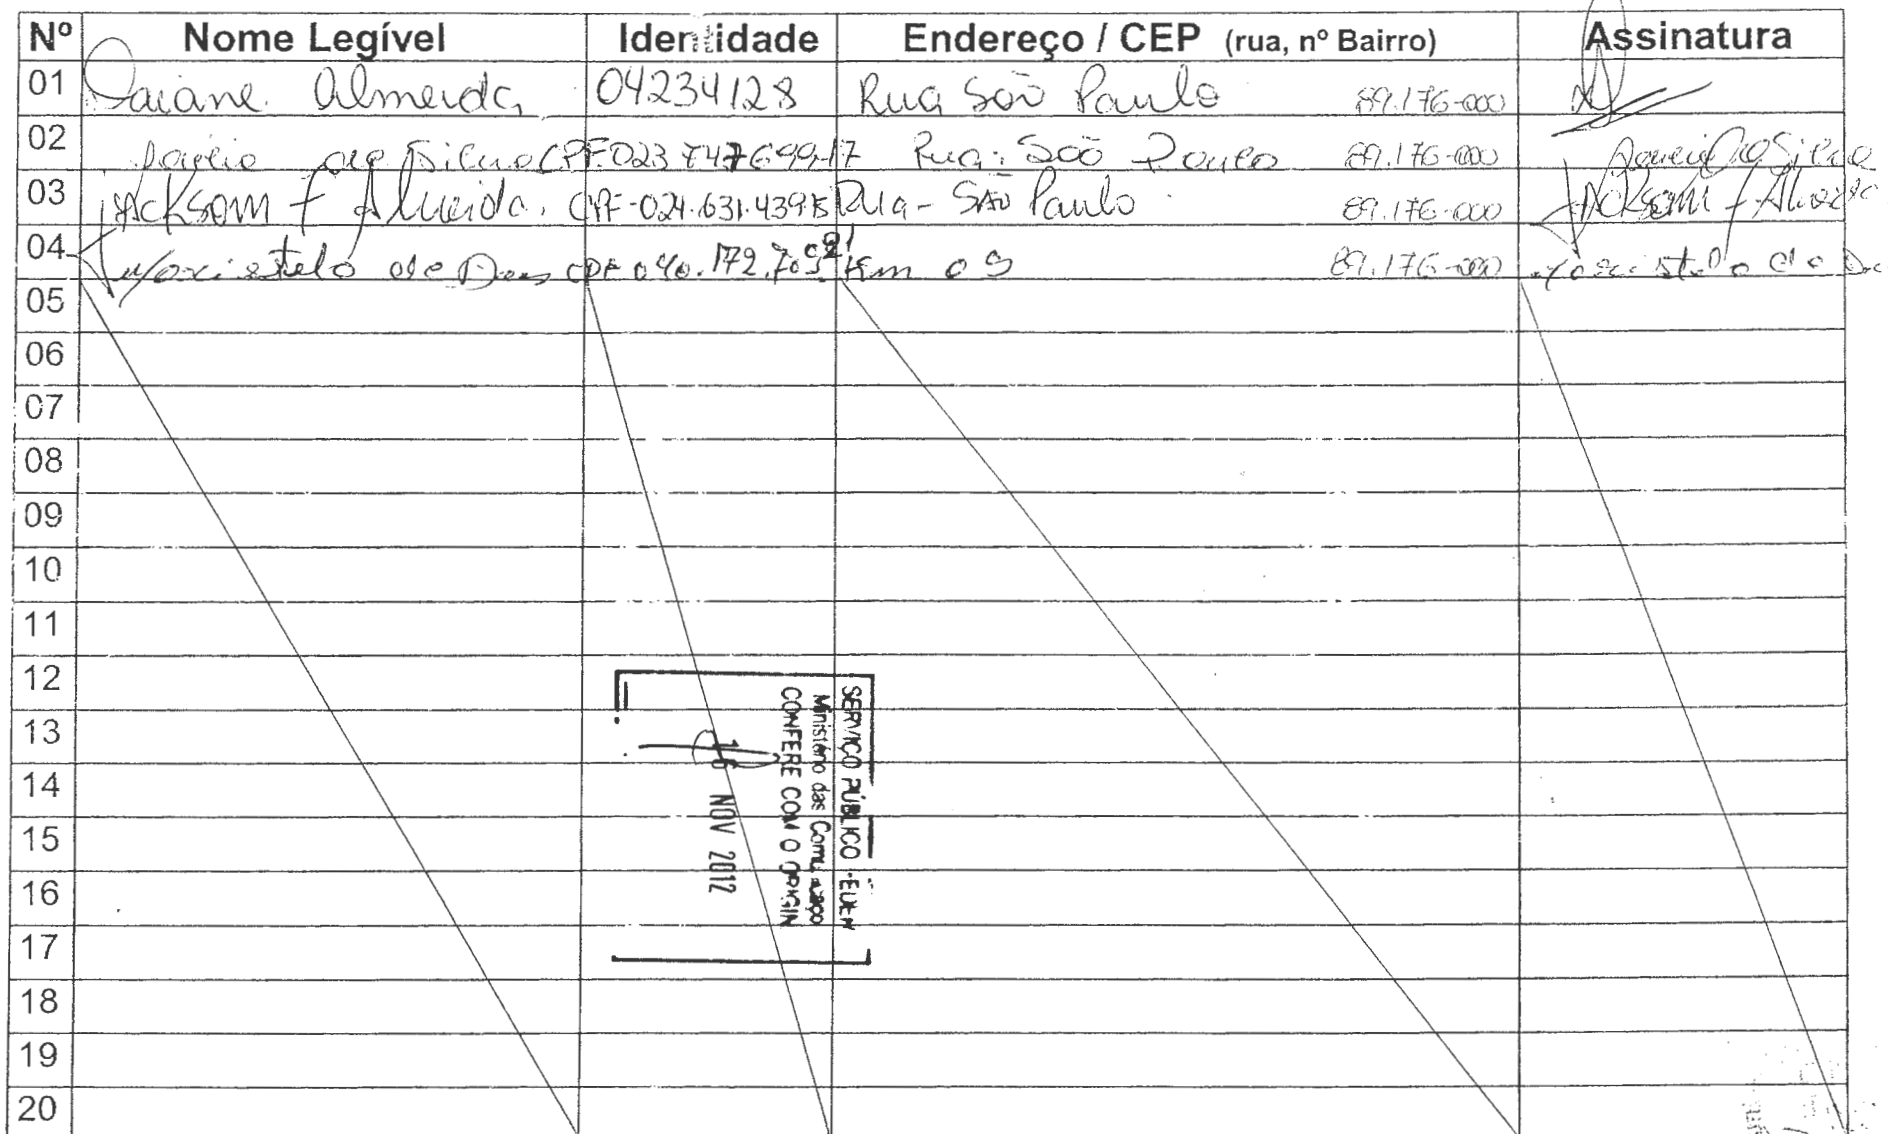 Nº Nome Legível Identidade Endereço / CEP (rua, nº Bairro) Assinatura
01 Daiane Almeida 04234128 Rua São Paulo 89.176-000
02 da Silva CPF 023 747699-17 Rua: São Paulo 89.176-000 da Silva
03 Jacksom f Almeida. CPF-024.631.439 Rua - São Paulo 89.176-000 Jacksom f Almeida
04 de Deus CPF 040.172.709 Km 09 89.176-000
05
06
07
08
09
10
11
12
13
14
15
16
17
18
19
20
SERVIÇO PÚBLICO
Ministério das
CONFERE COM O ORIGIN
16 NOV 2012